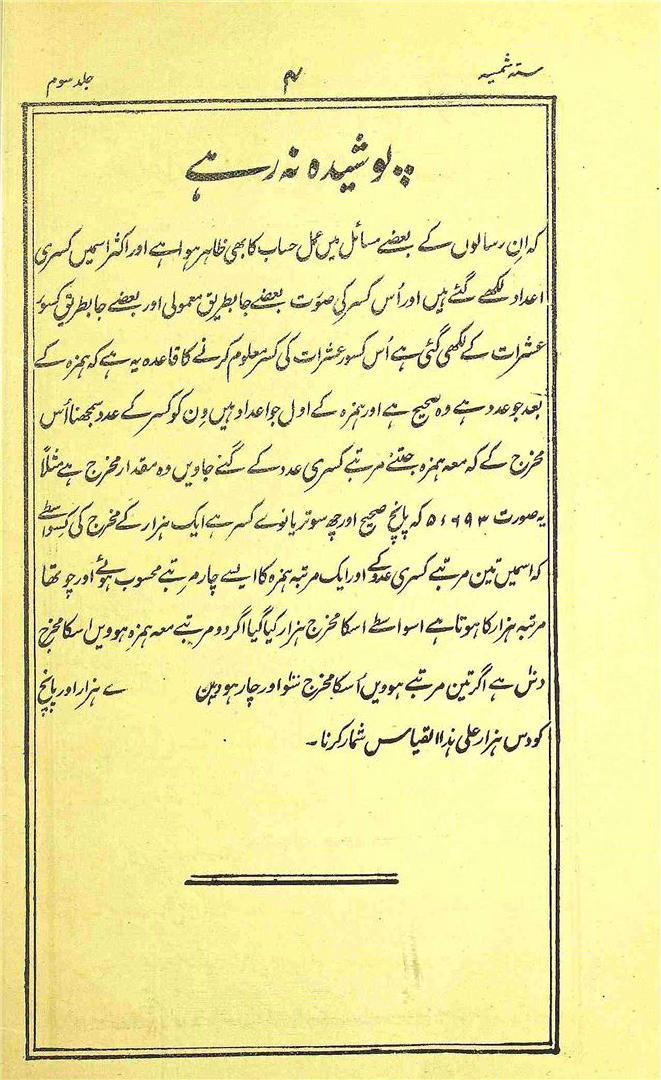 ستہ شمسیہ ۴ جلد سوم
پوشیدہ نہ رہے
کہ اِن رسالوں کے بعضے مسائل میں عمل حساب کا بھی ظاہر ہوا ہے اور اکثر اسمیں کسری
اعداد لکھے گئے ہیں اور اُس کسر کی صورت بعضے جا بطریق معمولی اور بعضے جا بطریق کسور
عشرات کے لکھی گئی ہے اُس کسور عشرات کی کسر معلوم کرنے کا قاعدہ یہ ہے کہ ہمزہ کے
بعد جو عدد ہے وہ صحیح ہے اور ہمزہ کے اول جو اعداد ہیں وِن کو کسر کے عدد سمجھنا اُس
مخرج کے کہ معہ ہمزہ جتنے مرتبے کسری عدد کے گنے جاویں وہ مقدار مخرج ہے مثلاً
یہ صورت ۵ء۶۹۳ کہ پانچ صحیح اور چھ سو تریانوے کسر ہے ایک ہزار کے مخرج کی کسواسطے
کہ اسمیں تین مرتبے کسری عدد کے اور ایک مرتبہ ہمزہ کا ایسے چار مرتبے محسوب ہوئے اور چوتھا
مرتبہ ہزار کا ہوتا ہے اسواسطے اسکا مخرج ہزار کیا گیا اگر دو مرتبے معہ ہمزہ ہوویں اسکا مخرج
دس ہے اگر تین مرتبے ہوویں اُسکا مخرج سَو اور چار ہوویں ے ہزار اور پانچ
کو دس ہزار علی ہذا القیاس شمار کرنا۔